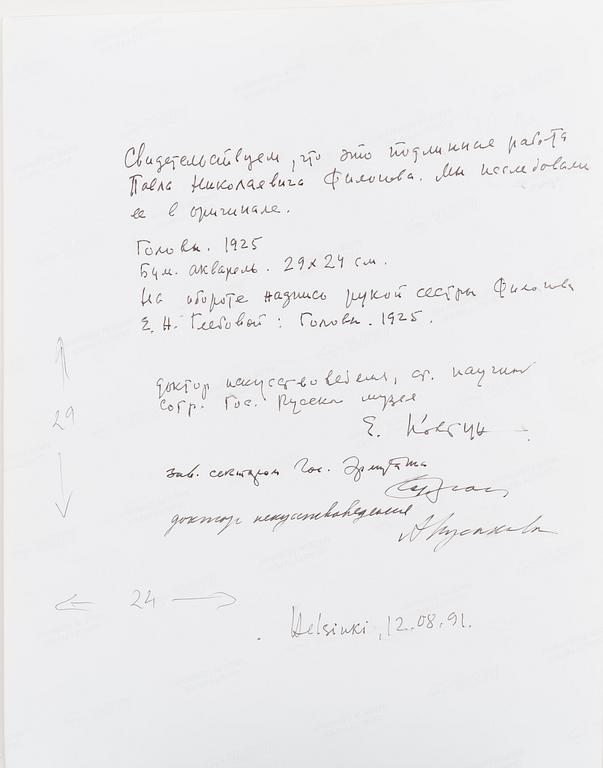 Свидетельствуем, что это подлинная работа
Павла Николаевича Филонова. Мы исследовали
ее в оригинале.
Головы. 1925
Бум. акварель. 29 x 24 см.
На обороте надпись рукой сестры Филонова
Е. Н. Глебовой: Головы. 1925.
доктор искусствоведения, ст. научный
сотр. Гос. Русск. музея
29
Е. Ковтун
зав. сектором Гос. Эрмитажа
доктор искусствоведения
24
Helsinki, 12.08.91.